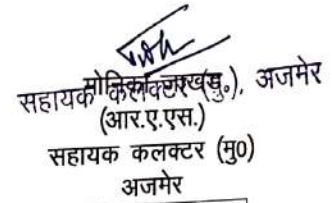 सहायक कलक्टर (मु.), अजमेर
(आर.ए.एस.)
सहायक कलक्टर (मु0)
अजमेर